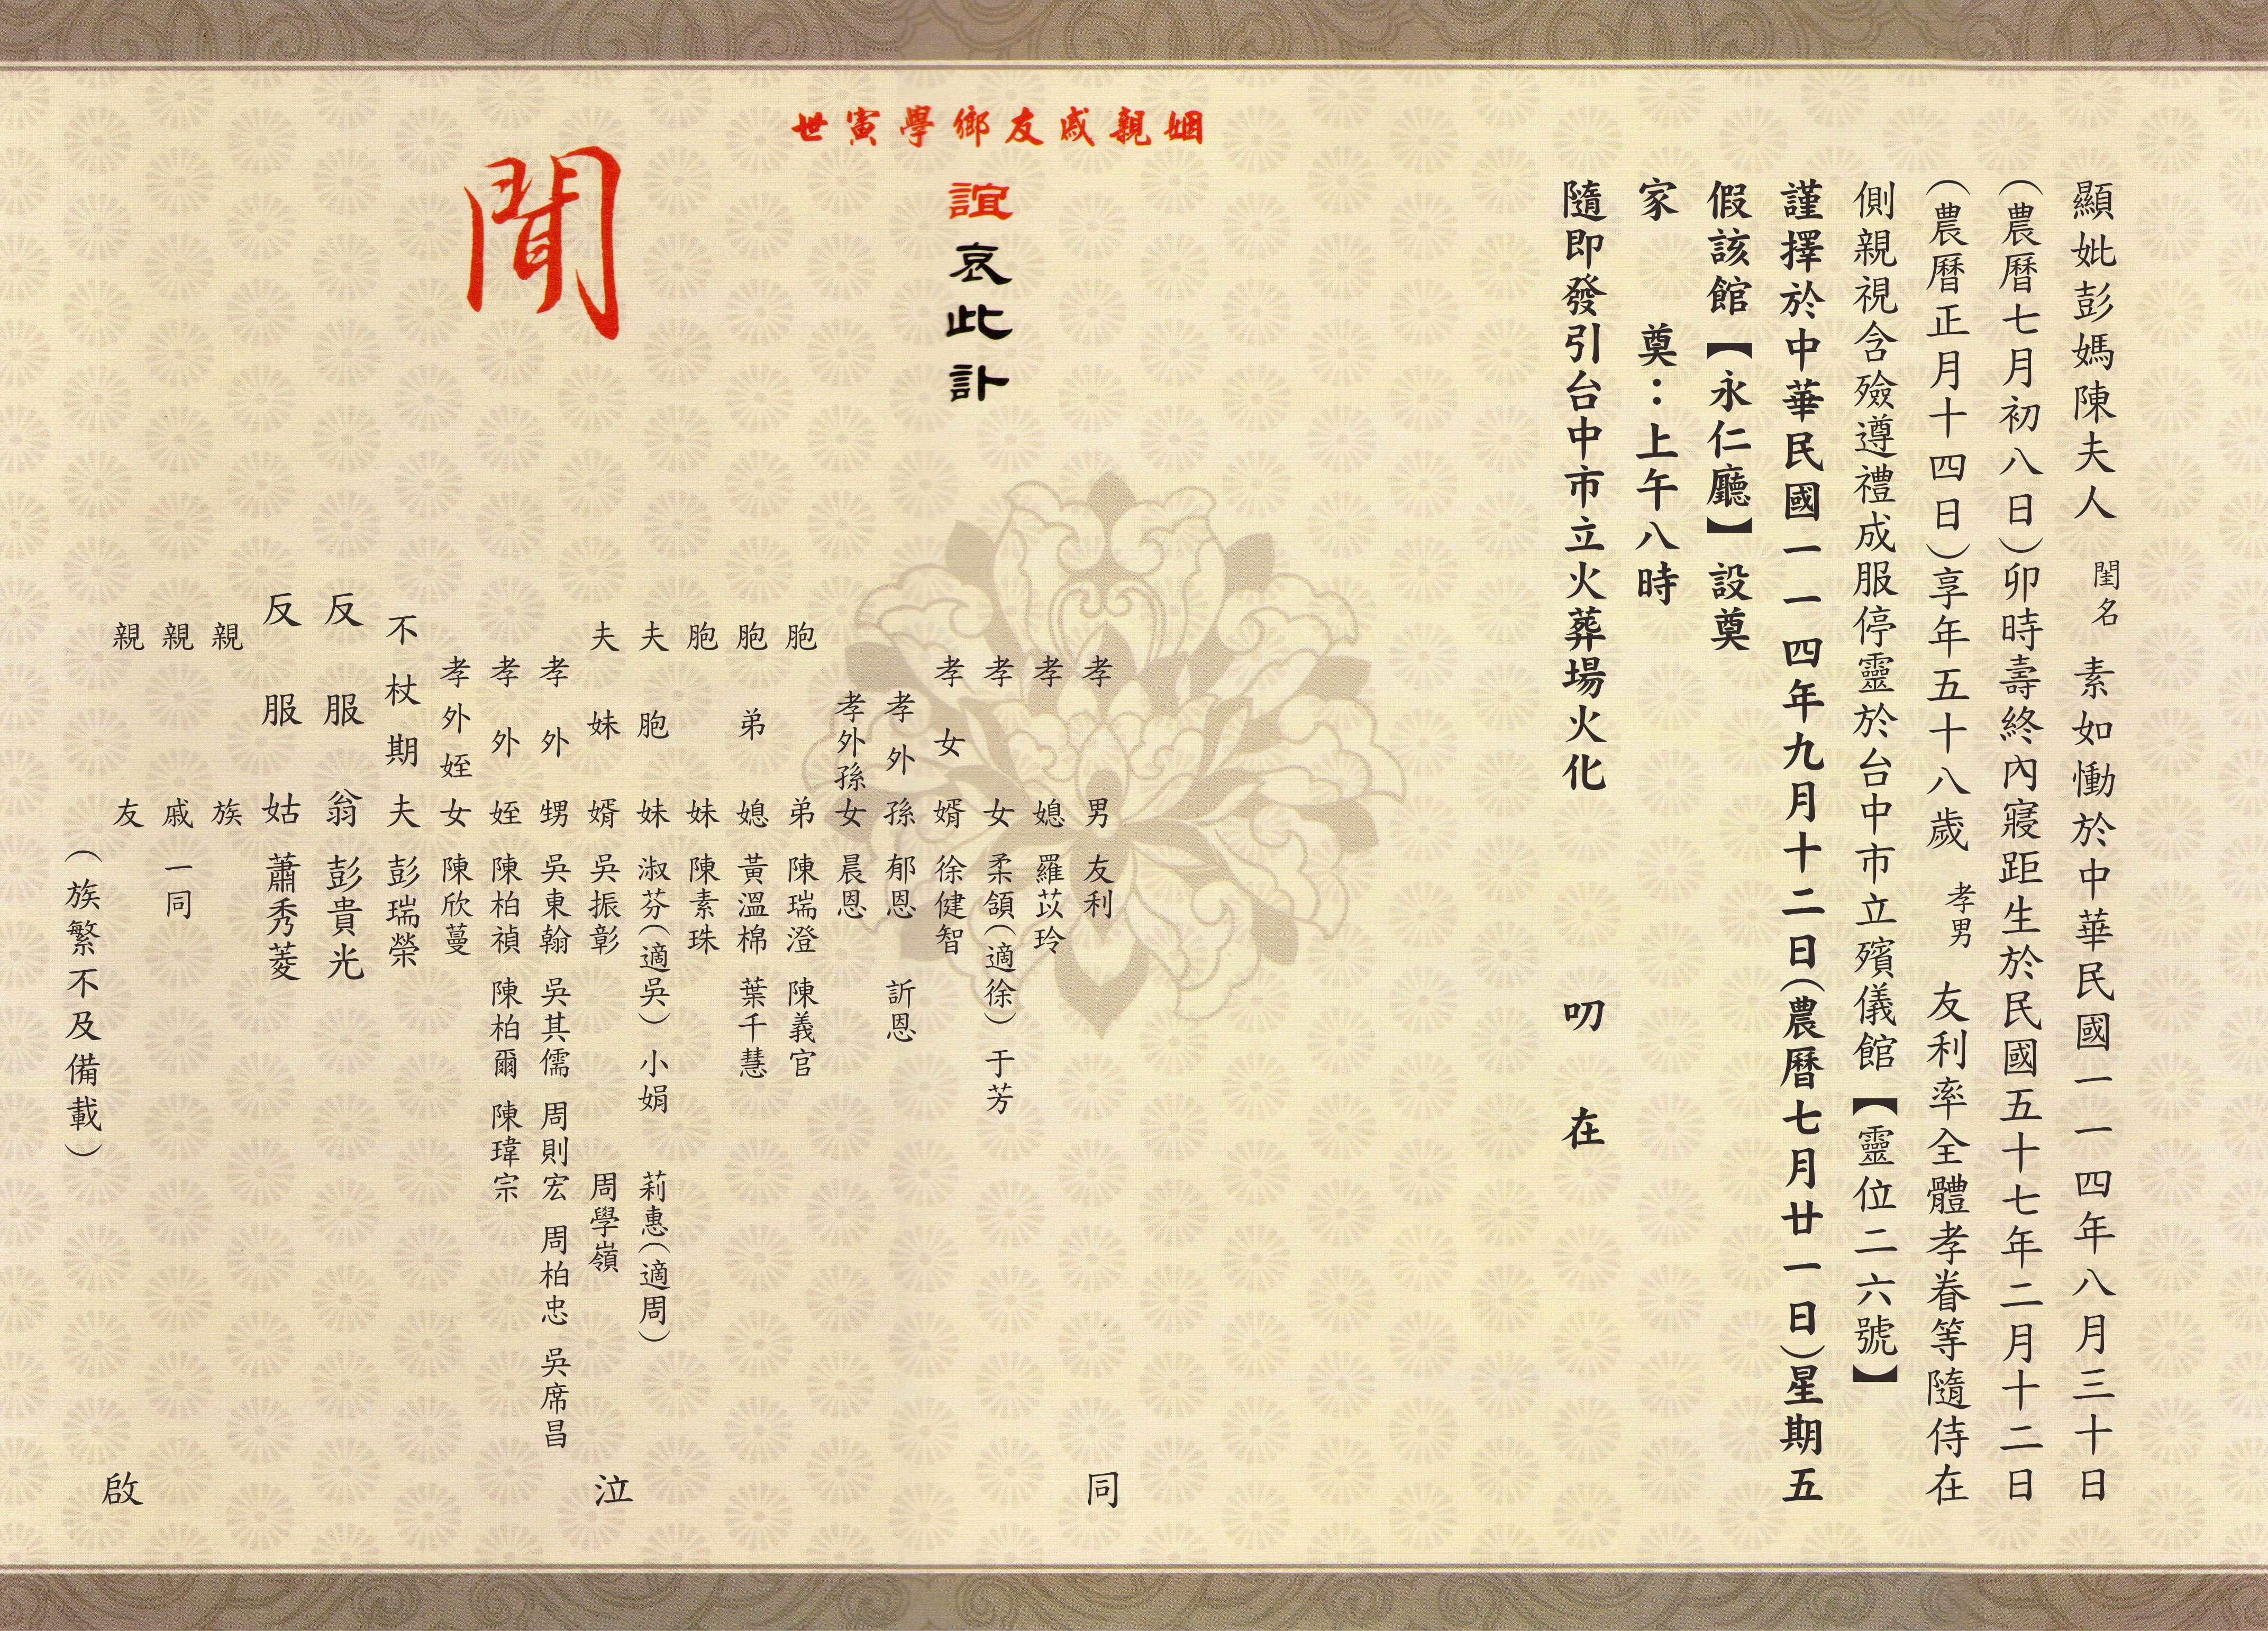 顯妣彭媽陳夫人 閨名 素如慟於中華民國一一四年八月三十日
(農曆七月初八日)卯時壽終內寢距生於民國五十七年二月十二日
(農曆正月十四日)享年五十八歲 孝男 友利率全體孝眷等隨侍在
側親視含殮遵禮成服停靈於台中市立殯儀館【靈位二六號】
謹擇於中華民國一一四年九月十二日(農曆七月廿一日)星期五
假該館【永仁廳】設奠
家 奠：上午八時
隨即發引台中市立火葬場火化 叨 在
姻親戚友鄉學寅世
誼哀此訃
聞
孝男 友利
孝媳 羅苡玲
孝女 柔頷(適徐) 于芳
孝女婿 徐健智
孝外孫 郁恩 訢恩
孝外孫女 晨恩
胞弟 陳瑞澄 陳義官
胞弟媳 黃溫棉 葉千慧
胞妹 陳素珠
夫胞妹 淑芬(適吳) 小娟 莉惠(適周)
夫妹婿 吳振彰 周學嶺
孝外甥 吳東翰 吳其儒 周則宏 周柏忠 吳席昌
孝外姪 陳柏禎 陳柏爾 陳瑋宗
孝外姪女 陳欣蔓
不杖期夫 彭瑞榮
反服翁 彭貴光
反服姑 蕭秀菱
親族
親戚 一同
親友
(族繁不及備載)
同 泣 啟